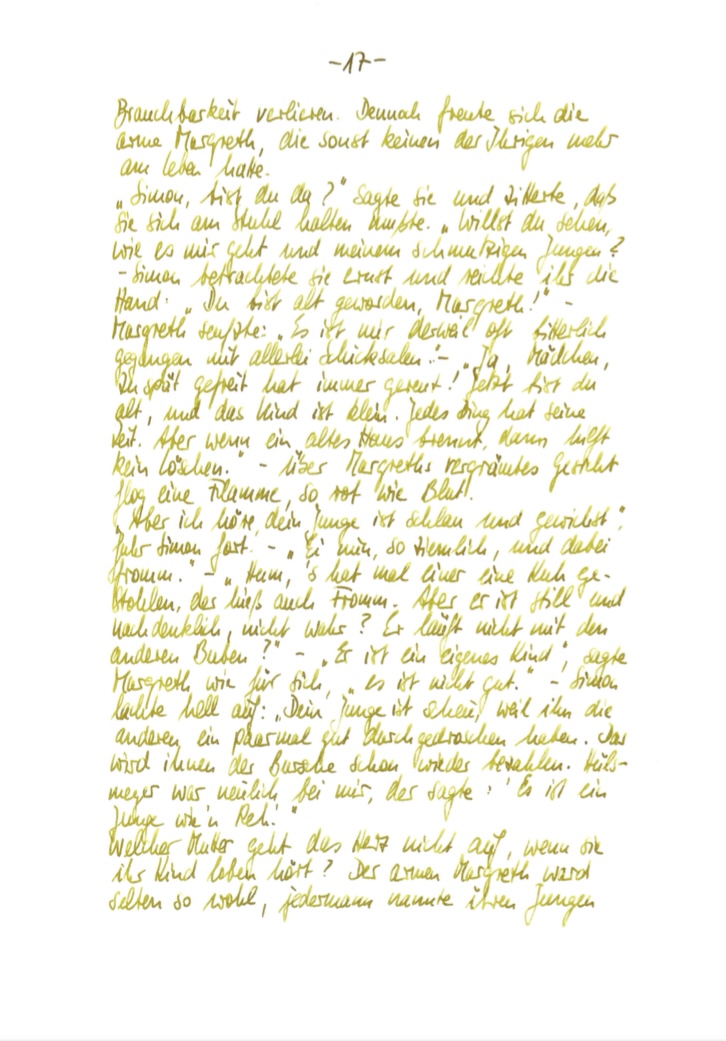 -17-
Brauchbarkeit verlieren. Dennoch freute sich die
arme Margreth, die sonst keinen der Ihrigen mehr
am Leben hatte.
„Simon, bist du da?" sagte sie und zitterte, daß
sie sich am Stuhl halten mußte. „Willst du sehen,
wie es mir geht und meinem schmutzigen Jungen?
- Simon betrachtete sie ernst und reichte ihr die
Hand: „Du bist alt geworden, Margreth!" -
Margreth seufzte: „Es ist mir derweil oft bitterlich
gegangen mit allerlei Schicksalen." - „Ja, Mädchen,
zu spät gefreit hat immer gereut! Jetzt bist du
alt, und das Kind ist klein. Jedes Ding hat seine
Zeit. Aber wenn ein altes Haus brennt, dann hilft
kein Löschen." - Über Margreths vergrämtes Gesicht
flog eine Flamme, so rot wie Blut.
„Aber ich höre, dein Junge ist schlau und gewichst",
fuhr Simon fort. - „Ei nun, so ziemlich, und dabei
fromm." - „Hum, 's hat mal einer eine Kuh ge-
stohlen, der hieß auch Fromm. Aber er ist still und
nachdenklich, nicht wahr? Er läuft nicht mit den
anderen Buben?" - „Er ist ein eigenes Kind", sagte
Margreth wie für sich, „es ist nicht gut." - Simon
lachte hell auf: „Dein Junge ist scheu, weil ihn die
anderen ein paarmal gut durchgedroschen haben. Das
wird ihnen der Bursche schon wieder bezahlen. Hüls-
meyer war neulich bei mir, der sagte: 'Es ist ein
Junge wie'n Reh.'"
Welcher Mutter geht das Herz nicht auf, wenn sie
ihr Kind loben hört? Der armen Margreth ward
selten so wohl, jedermann nannte ihren Jungen